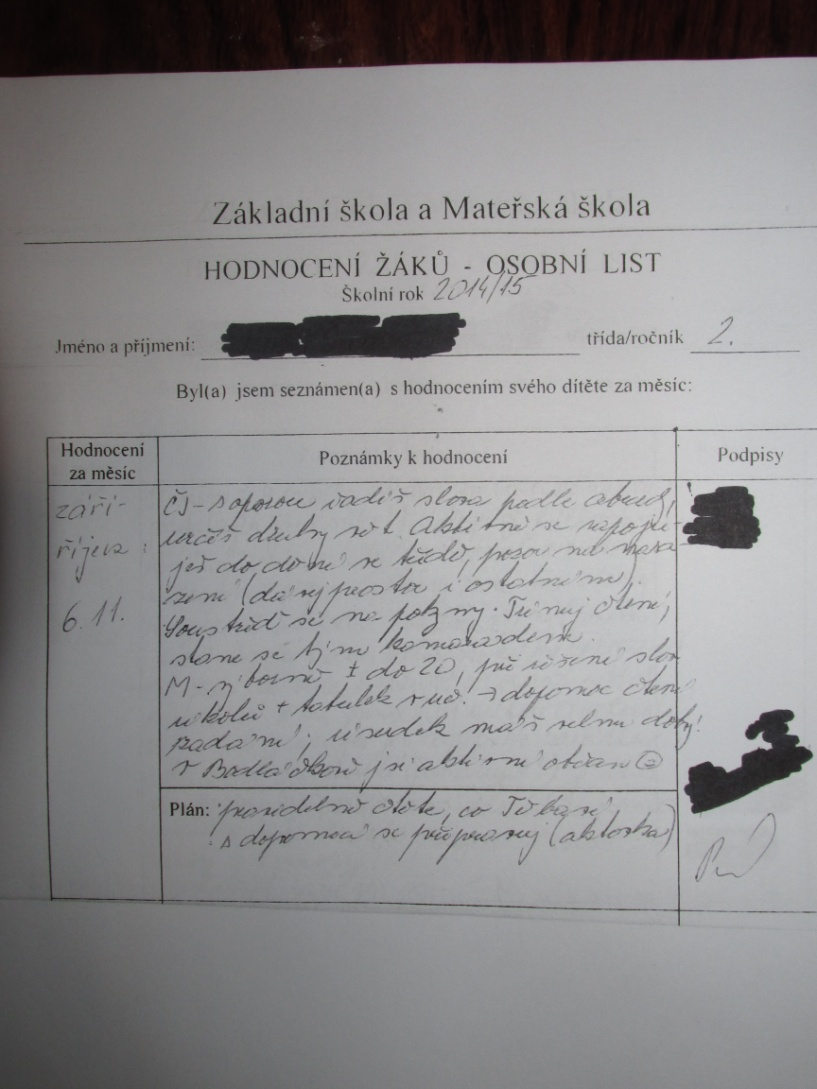 Základní škola a Mateřská škola
HODNOCENÍ ŽÁKŮ - OSOBNÍ LIST
Školní rok 2014/15
Jméno a příjmení: třída/ročník 2.
Byl(a) jsem seznámen(a) s hodnocením svého dítěte za měsíc:
Hodnocení za měsíc
Poznámky k hodnocení
Podpisy
září-
říjen:
6.11.
ČJ - s oporou řadíš slova podle abecedy,
určíš druhy vět. Aktivně se zapoju-
ješ do dění ve třídě, pozor na
(dávej prostor i ostatním).
Soustřeď se na pokyny. Trénuj čtení,
stane se tvým kamarádem.
M - výborně ± do 20, při řešení slov.
úkolů + tabulek v uč. → dopomoc čtení
zadání, úsudek máš velmi dobrý!
V jsi aktivní občan ☺
Plán: pravidelně čtěte, co Tě baví
s dopomocí se připravuj (aktovka)